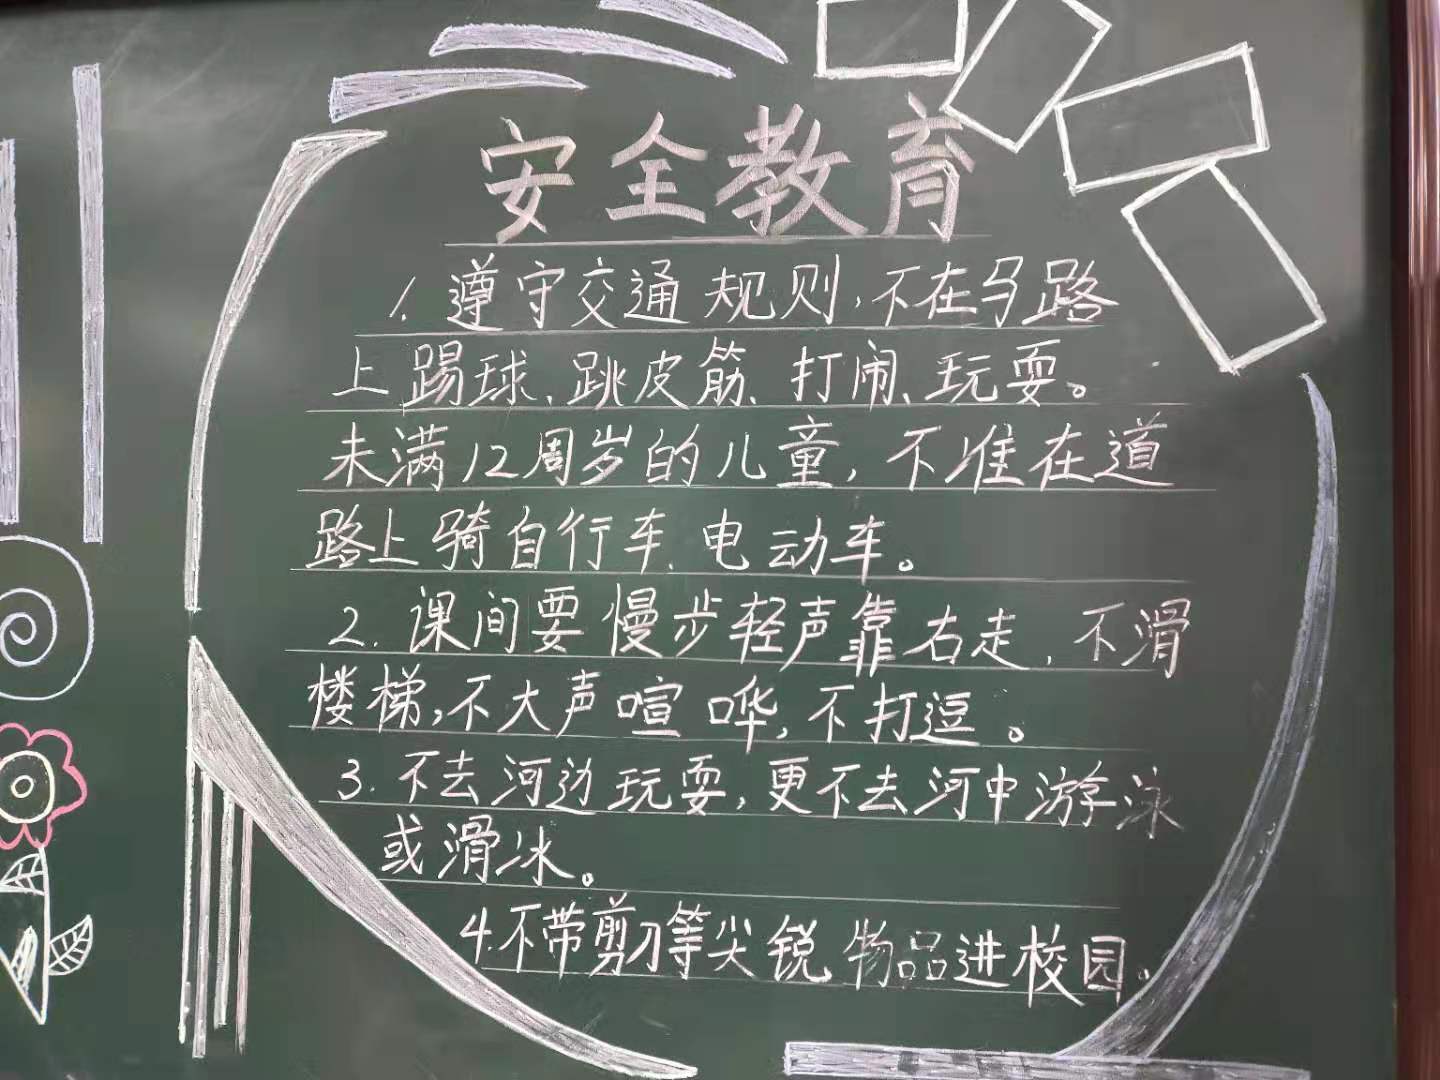 安全教育
1. 遵守交通规则,不在马路
上踢球、跳皮筋、打闹、玩耍。
未满12周岁的儿童,不准在道
路上骑自行车、电动车。
2. 课间要慢步轻声靠右走,不滑
楼梯,不大声喧哗,不打逗。
3. 不去河边玩耍,更不去河中游泳
或滑冰。
4.不带剪刀等尖锐物品进校园。